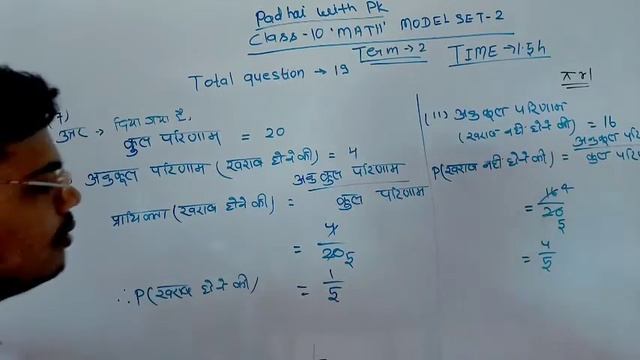 Padhai with Pk
Class-10 'MATH' MODEL SET-2
Term→2 TIME→1.5h
Total question → 19
πrl
7)
उत्तर → दिया गया है,
कुल परिणाम = 20
अनुकूल परिणाम (खराब होने की) = 4
प्रायिकता (खराब होने की) = अनुकूल परिणाम / कुल परिणाम
= 4/20 5
∴ P(खराब होने की) = 1/5
(11) अनुकूल परिणाम
(खराब नही होने की) = 16
P(खराब नही होने की) = अनुकूल परि / कुल परि
= 16 4/20 5
= 4/5